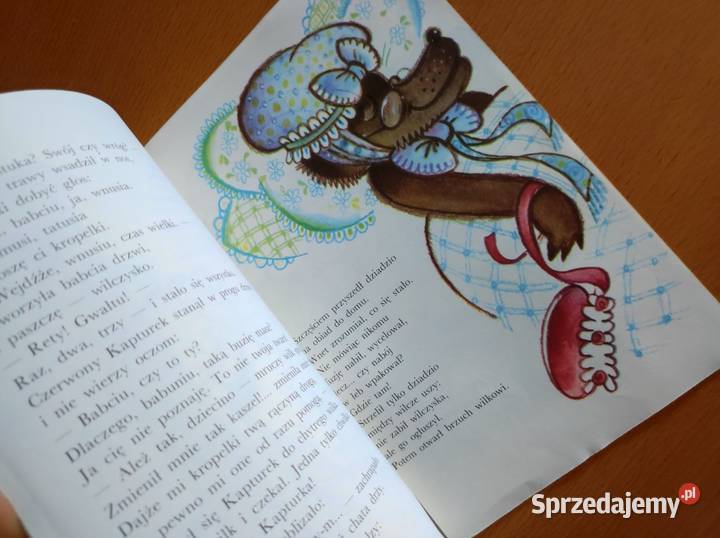 Swój czy wróg?
trawy wsadził w nos,
ki dobyć głos:
babciu, ja, wnusia.
tatusia
ci kropelki.
Wejdźże, wnusiu, czas wielki.
babcia drzwi,
paszczę — wilczysko.
— Rety! Gwałtu!
Raz, dwa, trzy — i stało się wszystko.
Czerwony Kapturek stanął w progu
i nie wierzy oczom:
— Babciu, czy to ty?
Dlaczego, babuniu, taką buzię masz?
Ja cię nie poznaję. To nie twoja twarz.
— Ależ tak, dziecino — mruczy wilk
Zmienił mnie tak kaszel!... zmieniła
Dajże mi kropelki twą rączyną drogą,
pewno mi one od razu pomogą.
się Kapturek do chytrego wilka
i czekał. Jedna tylko chwilka
Kapturka!
zachrapało
chata drży.
Szczęściem przyszedł dziadzio
na obiad do domu.
Wnet zrozumiał, co się stało.
Nie mówiąc nikomu
nabił, wycelował,
czy nabój
w łeb wpakował?
Gdzie tam!
Strzelił tylko dziadzio
między wilcze uszy:
nie zabił wilczyska,
ale go ogłuszył.
Potem otwarł brzuch wilkowi.
Sprzedajemy.pl